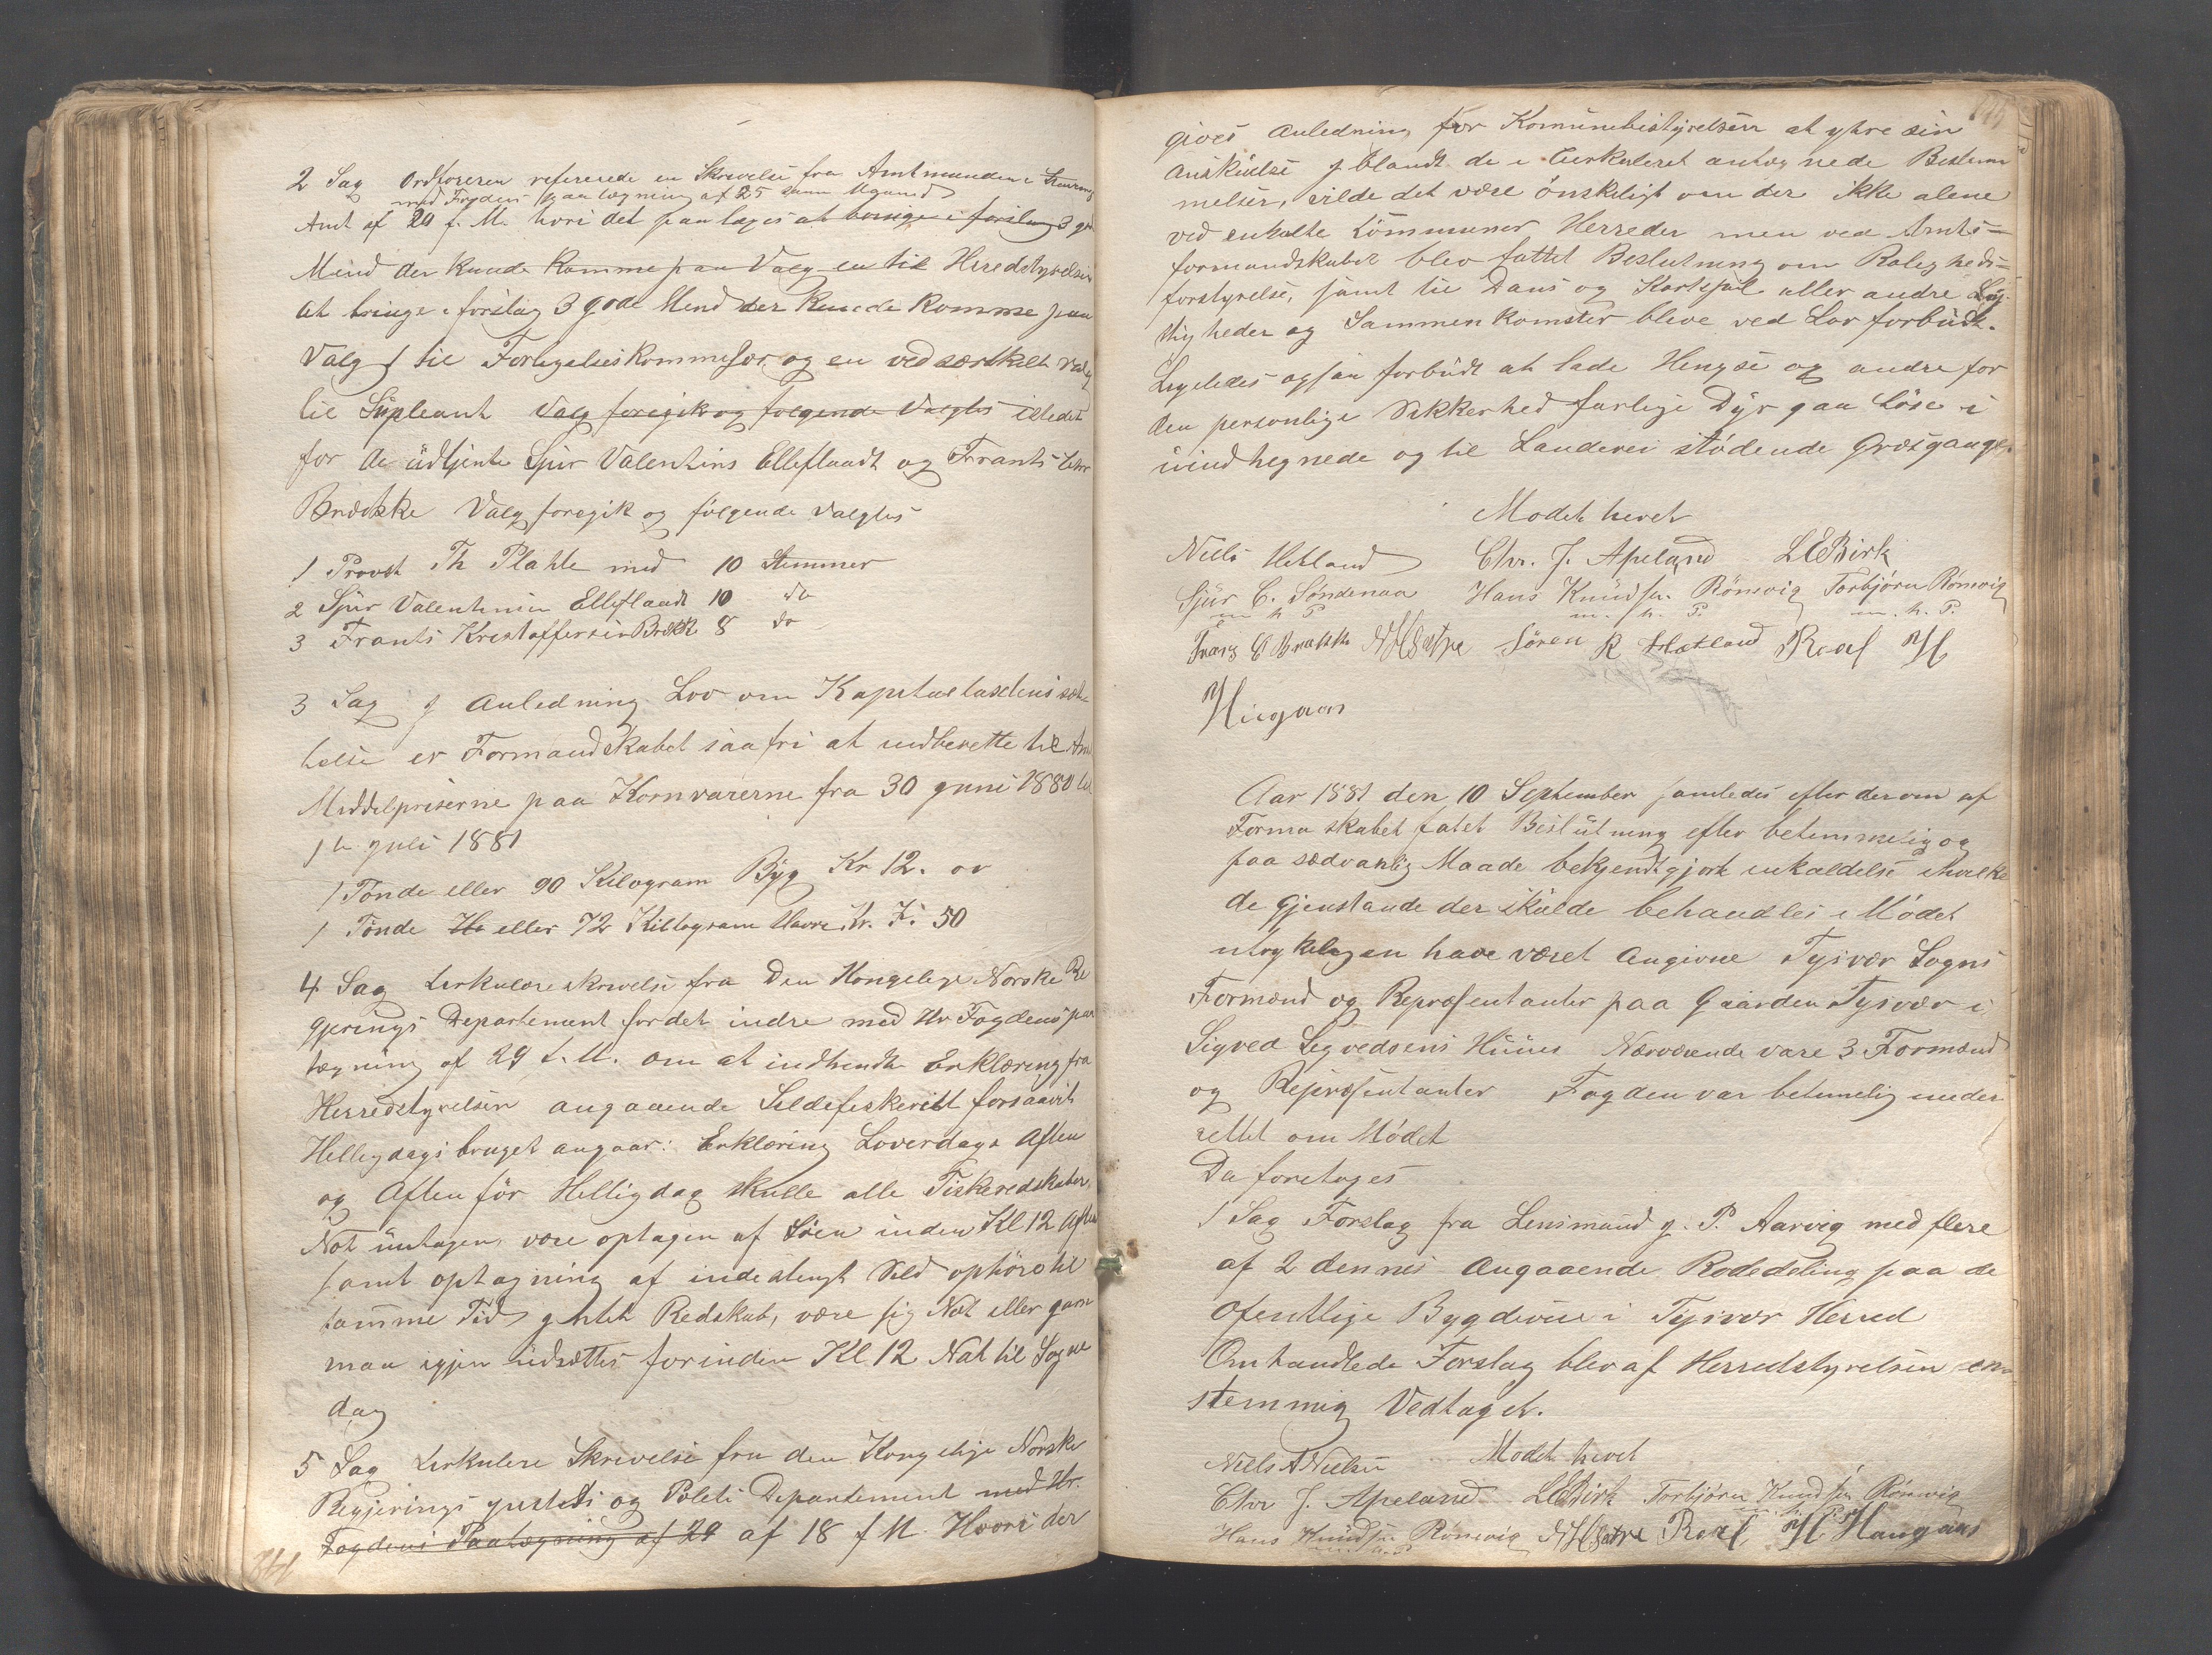 2 Sag Ordføreren refererede en Skrivelse fra Amtmanden i
med Fogdens paategning af 25 samme Maaned
Amt af 20 f. M. hvori det paalæges at bringe i forslag 3 gode
Mænd der kunde komme paa Valg en til Heredstyrelsen
at bringe i forslag 3 gode Mend der kunde komme paa
Valg 1 til Forligelseskommisær og en ved særskilt Valg
til Supleant Valg foregik og følgende Valgtes istedet
for de udtjente Sjur Valentins Elleflaadt og Frants
Brække Valg foregik og følgende valgtes
1 Provst Th Plahte med 10 Stemmer
2 Sjur Valentinsen Elleflaadt 10 do
3 Frants Kristoffersen Brekke 8 do
3 Sag I Anledning Lov om Kapitaltaxtens
telse er Formandskabet saa fri at indberette til Amt
Middelpriserne paa Kornvarerne fra 30 Juni 1880 til
1te Juli 1881
1 Tønde eller 90 Kilogram Byg Kr 12. 00
1 Tønde Ha eller 72 Killogram Havre Kr. 7. 50
4 Sag Cirkulære skrivelse fra Den Kongelige Norske Re
gjerings Departement for det indre med Hr Fogdens paa
tegning af 29 f. M. om at indhendte Erklæring fra
Herredstyrelsen angaaende Sildefiskeriet forsaavit
Helligdags bruget angaar: Erklæring Løverdags Aften
og Aften før Helligdag skulle alle Fiskeredskaber,
Not untagen, være optagen af Søen inden Kl 12 Aften
samt optagning af indestengt Sild ophøre til
samme Tid intet Redskab, være sig Not eller garn
maa igjen udsættes forinden Kl 12 Nat til Søgne
dag
5 Sag Cirkulere Skrivelse fra den Kongelige Norske
Regjerings Justits og Politi Departement med Hr.
Fogdens Paategning af 29 af 18 f M. Hvori der
gives Anledning for Komunebestyrelsen at ytre sin
Anskuelse I blandt de i Cirkuleret antegnede Bestem
melser, vilde det være ønskeligt om der ikke alene
ved enkelte Kommuner Herreder men ved Amts-
formandskabet blev fattet Beslutning om Roligheds-
forstyrelse, samt til Dans og Kortspil eller andre Ly-
stigheder og Sammenkomster bleve ved Lov forbudt.
Ligeledes ogsaa forbudt at lade Hingse og andre for
den personlige Sikkerhed farlige Dyr gaa løse i
uindhegnede og til Landevei stødende Græsgange.
Mødet hevet
Niels Hetland Chr. J. Apeland L E Birk
Sjur C. Søndenaa Hans Knudsen Rønevig Torbjørn Rønevig
m h P m. h. P. m. h. P.
Frans C Brække Søren R Hætland
Haugaas
Aar 1881 den 10 September samledes efter derom af
Forma skabet fatet Beslutning efter betimmelig og
paa sædvanlig Maade bekjendtgjort inkaldelse i hvilke
de Gjenstande der skulde behandles i Mødet
utrykeligen have været angivne Tysvær Sogns
Formænd og Repræsentanter paa Gaarden Tysvær i
Sigved Sigvedsens Huus Nærværende vare 3 Formænd
og Repræsentanter Fogden var betimelig under
rettet om Mødet
Da foretoges
1 Sag Forslag fra Lensmand J. P. Aarvig med flere
af 2 dennes Angaaende Rodedeling paa de
ofentlige Bygdeveie i Tysvær Herred
Omhandlede Forslag blev af Herredstyrelsen en
stemmig Vedtaget.
Mødet hevet
Niels A Nielsen
Chr J. Apeland L E Birk Torbjørn Knudsen Rønevig
Hans Knudsen Rønevig Haugaas